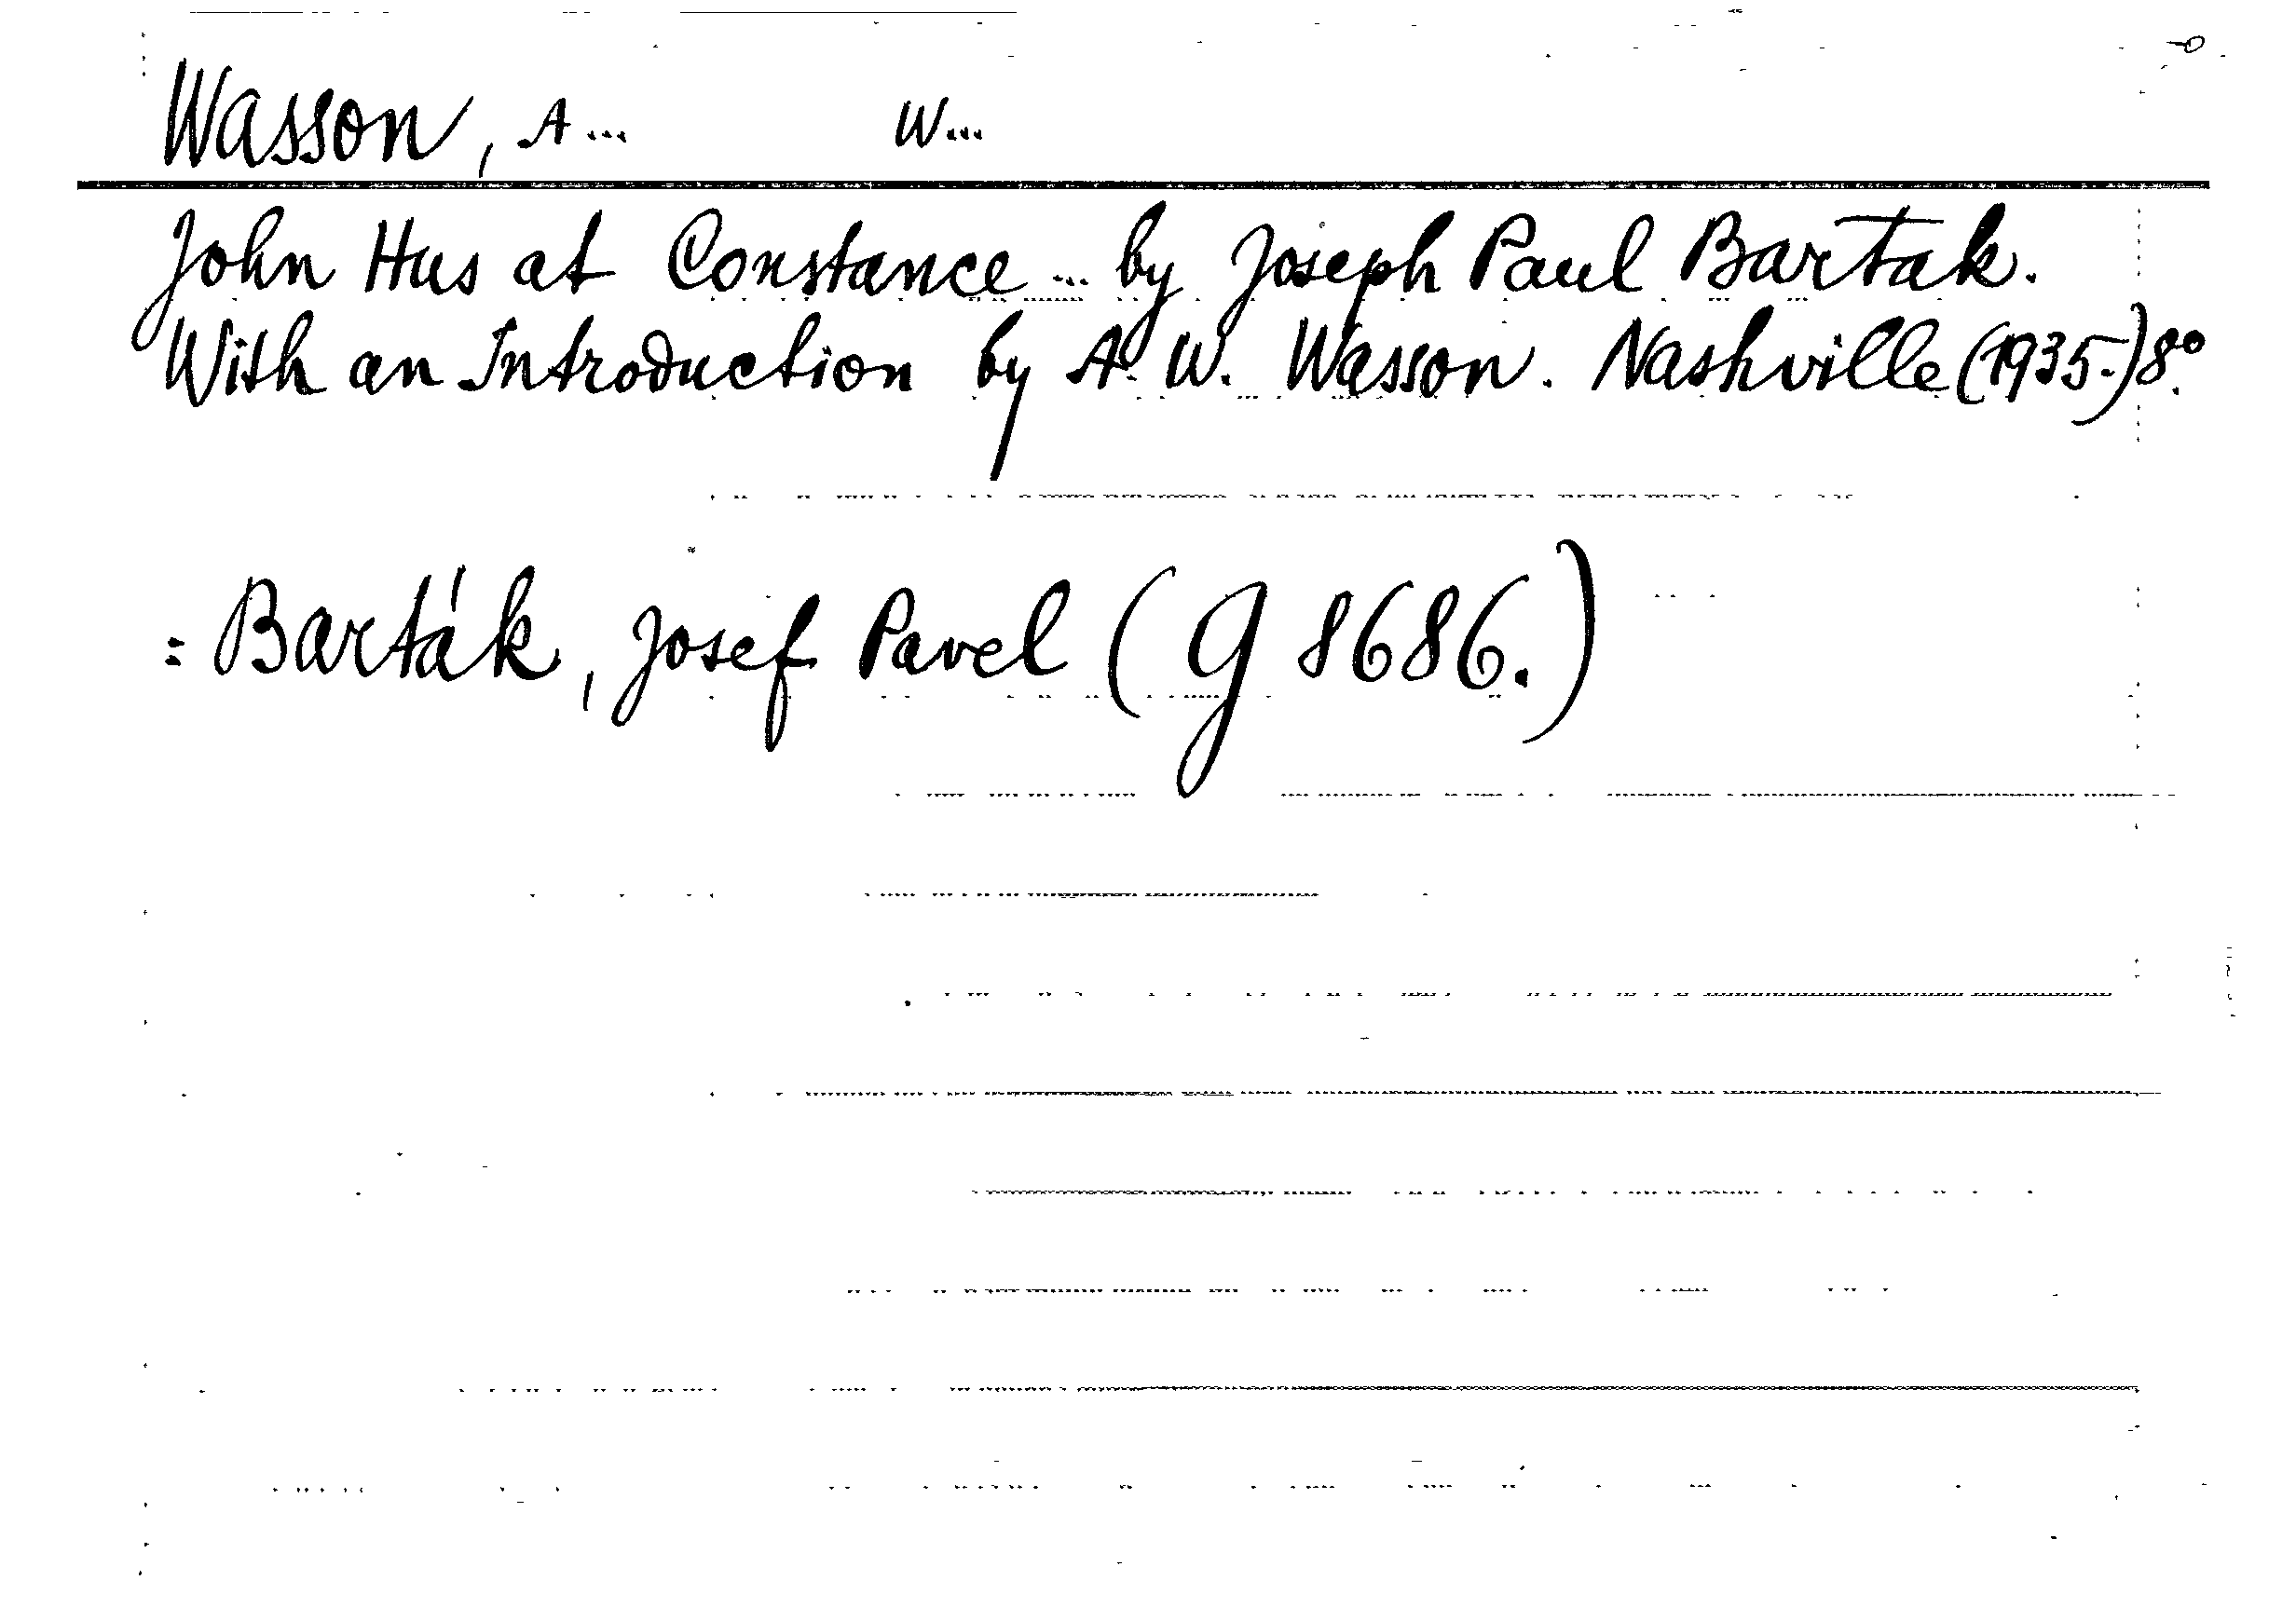 Wasson, A... W...
John Hus at Constance ... by Joseph Paul Bartak.
With an Introduction by A. W. Wasson. Nashville (1935.) 8°.
= Barták, Josef Pavel (G 8686.)